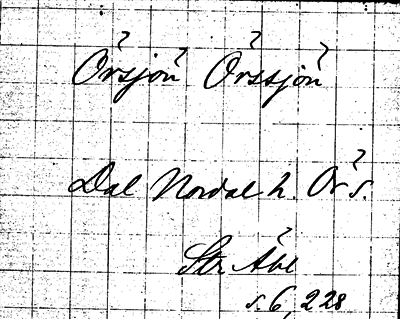 Örsjön Örssjön
Dal Nordal h. Ör s.
Sbr Åbl
s. 6, 228